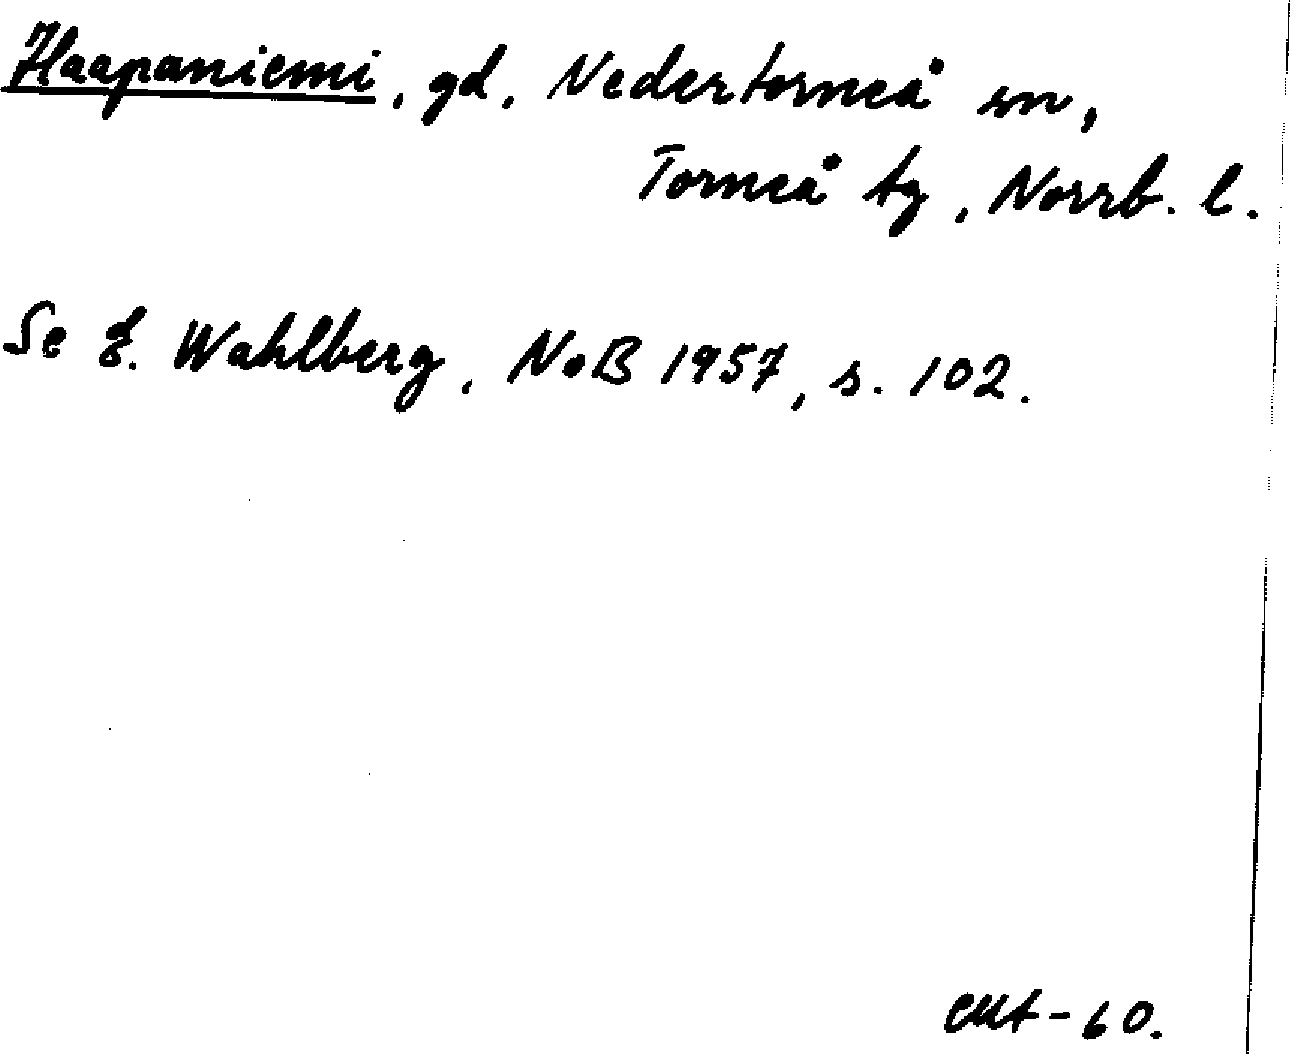 Haapaniemi, gd, Nedertorneå sn,
Torneå tg, Norrb. l.
Se E. Wahlberg, NoB 1957, s. 102.
-60.